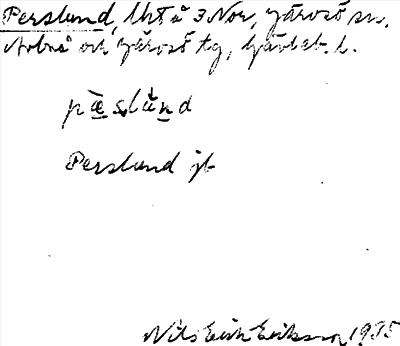 Perslund, Utt å 3 Nor, Järvsö sn,
Arbrå och Järvsö tg, Gävleb. l.
pæ̀slùnd
Perslund jb
Nils Erik Eriksson 1935